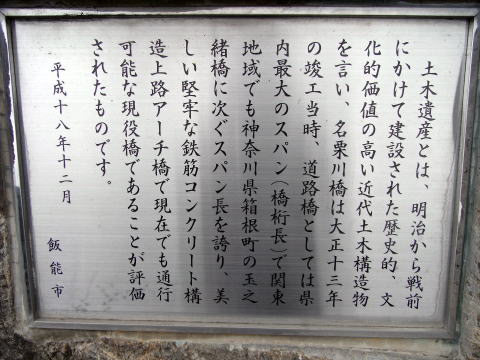 土木遺産とは、明治から戦前
にかけて建設された歴史的、文
化的価値の高い近代土木構造物
を言い、名栗川橋は大正十三年
の竣工当時、道路橋としては県
内最大のスパン（橋桁長）で関東
地域でも神奈川県箱根町の玉之
緒橋に次ぐスパン長を誇り、美
しい堅牢な鉄筋コンクリート構
造上路アーチ橋で現在でも通行
可能な現役橋であることが評価
されたものです。
平成十八年十二月
飯能市